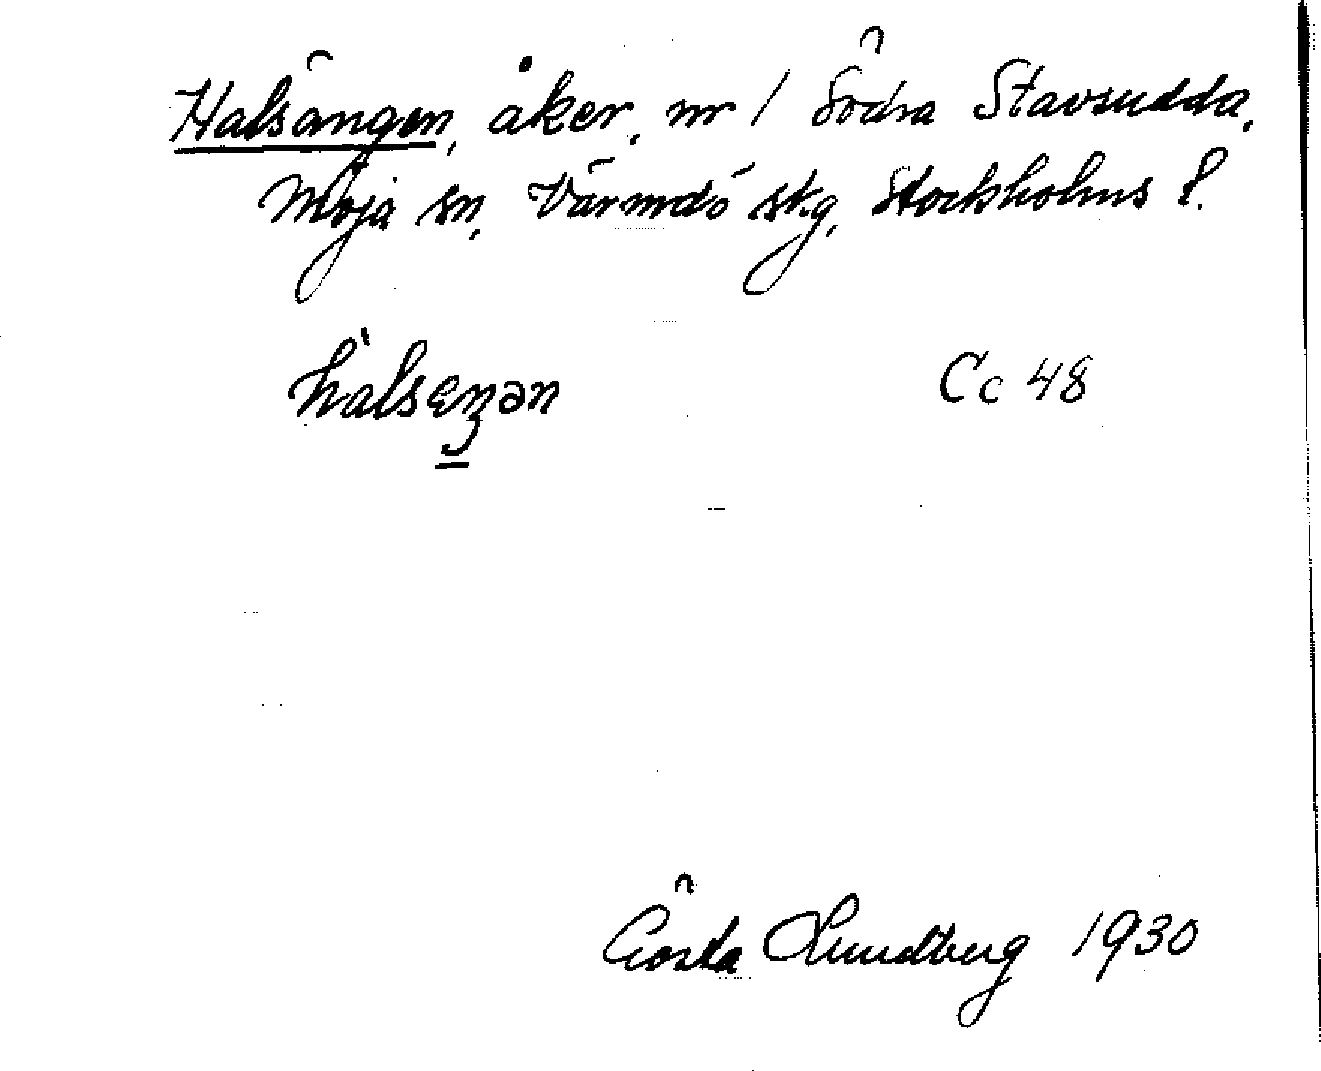 Halsängen, åker, nr 1 Södra Stavsudda,
Möja sn, Värmdö skg, Stockholms l.
Cc 48
Gösta Lundberg 1930